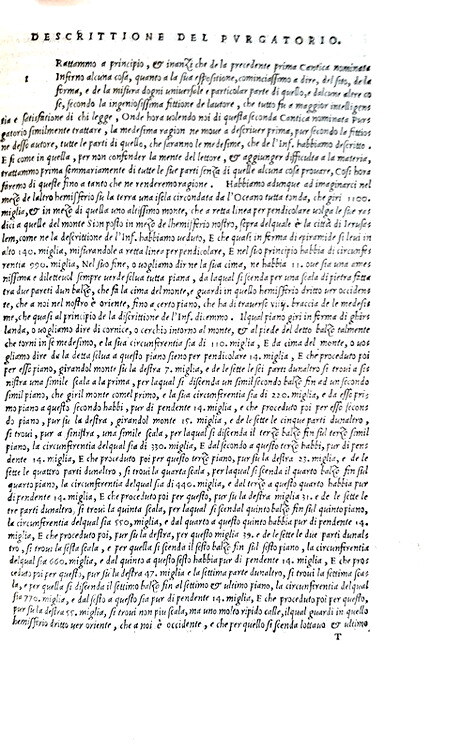 DESCRITTIONE DEL PVRGATORIO.
Rattammo a principio, & inanzi che de la precedente prima Cantica nominata
1 Inferno alcuna cosa, quanto a la sua espositione, cominciassimo a dire, del sito, de la
forma, e de la misura dogni universale e particular parte di quello, e dalcune altre co
se, secondo la ingeniosissima fittione de lautore, che tutto fu a maggior intelligen
tia e satisfatione di chi legge, Onde hora volendo noi di questa seconda Cantica nominata Pur
gatorio similmente trattare, la medesima ragion ne move a descriver prima, pur secondo la fittio
ne desso autore, tutte le parti di quello, che saranno le medesime, che de l'Inf. habbiamo descritto.
E si come in quella, per non confonder la mente del lettore, & aggiunger difficulta a la materia,
trattammo prima semmariamente di tutte le sue parti senza di quelle alcuna cosa provare, Cosi hora
faremo di queste fino a tanto che ne renderemo ragione. Habbiamo adunque ad imaginarci nel
mezo de laltro hemisferio su la terra una isola circondata da l'Oceano tutta tonda, che giri 1100.
miglia, & in mezo di quella uno altissimo monte, che a retta linea per pendicolare volga le sue ra
dici a quelle del monte Sion posto in mezo de lhemisferio nostro, sopra delquale è la città di Ierusa
lem, come ne la descrittione de l'Inf. habbiamo veduto, E che quasi in forma di piramide si levi in
alto 140. miglia, misurandole a retta linea perpendicolare, E nel suo principio habbia di circunfe
rentia 990. miglia, Nel suo fine, o vogliamo dir ne la sua cima, ne habbia 11. ove sia una ame
nissima e dilettevol sempre verde selva tutta piana, da laqual si scenda per una scala di pietra fatta
tra due pareti dun balzo, che fa la cima del monte, e guardi in quello hemisferio dritto ver occiden
te, che a noi nel nostro è oriente, fino a certo piano, che ha di traverso braccia de le medesi
me, che quasi al principio de la discrittione de l'Inf. diremmo. Ilqual piano giri in forma di ghir
landa, o vogliamo dire di cornice, o cerchio intorno al monte, & al piede del detto balzo talmente
che torni in se medesimo, e la sua circunferentia sia di 110. miglia, E da cima del monte, o vo
gliamo dire da la detta selva a questo piano sieno per pendicolare 14. miglia, E che proceduto poi
per esso piano, girando l monte su la destra 7. miglia, e de le sette le sei parti dunaltro si trovi a si
nistra una simile scala a la prima, per laqual si discenda un simil secondo balzo fin ad un secondo
simil piano, che giri l monte comel primo, e la sua circunferentia sia di 220. miglia, e da esso pri
mo piano a questo secondo habbi, pur di pendente 14. miglia, e che proceduto poi per esso secon
do piano, pur su la destra, girando l monte 15. miglia, e de le sette le cinque parti dunaltro,
si trovi, pur a sinistra, una simile scala, per laqual si discenda il terzo balzo fin sul terzo simil
piano, la circunferentia delqual sia di 330. miglia, E dal secondo a questo terzo habbi, pur di pen
dente 14. miglia, E che proceduto poi per questo, pur su la destra 23. miglia, e de le
sette le quattro parti dunaltro, si trovi la quarta scala, per laqual si scenda il quarto balzo fin sul
quarto piano, la circunferentia delqual sia di 440. miglia, e dal terzo a questo quarto habbia pur
di pendente 14. miglia, E che proceduto poi per questo, pur su la destra miglia 31. e de le sette le
tre parti dunaltro, si trovi la quinta scala, per laqual si scenda l quinto balzo fin sul quinto piano,
la circunferentia delqual sia 550. miglia, e dal quarto a questo quinto habbia pur di pendente 14.
miglia, E che proceduto poi, pur su la destra per questo miglia 39. e de le sette le due parti dunal
tro, si trovi la sesta scala, e per quella si scenda il sesto balzo fin sul sesto piano, la circunferentia
delqual sia 660. miglia, e dal quinto a questo sesto habbia pur di pendente 14. miglia, E che pro
ceduto poi per questo, pur su la destra 47. miglia e la settima parte dunaltro, si trovi la settima sca
la, e per quella si discenda il settimo balzo fin al settimo & ultimo piano, la circunferentia delqual
sia 770. miglia, e dal sesto a questo sia pur di pendente 14. miglia, E che proceduto poi per questo,
pur su la destra 55. miglia, si trovi non piu scala, ma uno molto ripido calle, ilqual guardi in quello
hemisferio dritto ver oriente, che a noi è occidente, e che per quello si scenda lottavo & ultimo
T